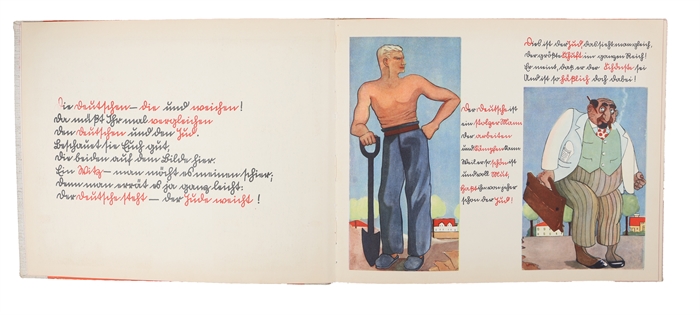 Die Deutschen – die und weichen!
Da müßt Ihr mal vergleichen
Den Deutschen und den Jud.
Beschauet sie Euch gut,
Die beiden auf dem Bilde hier.
Ein Witz – man möcht es meinen schier;
Denn man errät es ja ganz leicht:
Der Deutsche steht – der Jude weicht!
Der Deutsche ist
ein stolzer Mann
der arbeiten
und kämpfen kann
Weil er so schön ist
und voll Mut,
Haßt ihn von jeher
schon der Jud!
Dies ist der Jud, das sieht man gleich,
Der größte Schuft im ganzen Reich!
Er meint, daß er der Schönste sei
Und ist so häßlich doch dabei!